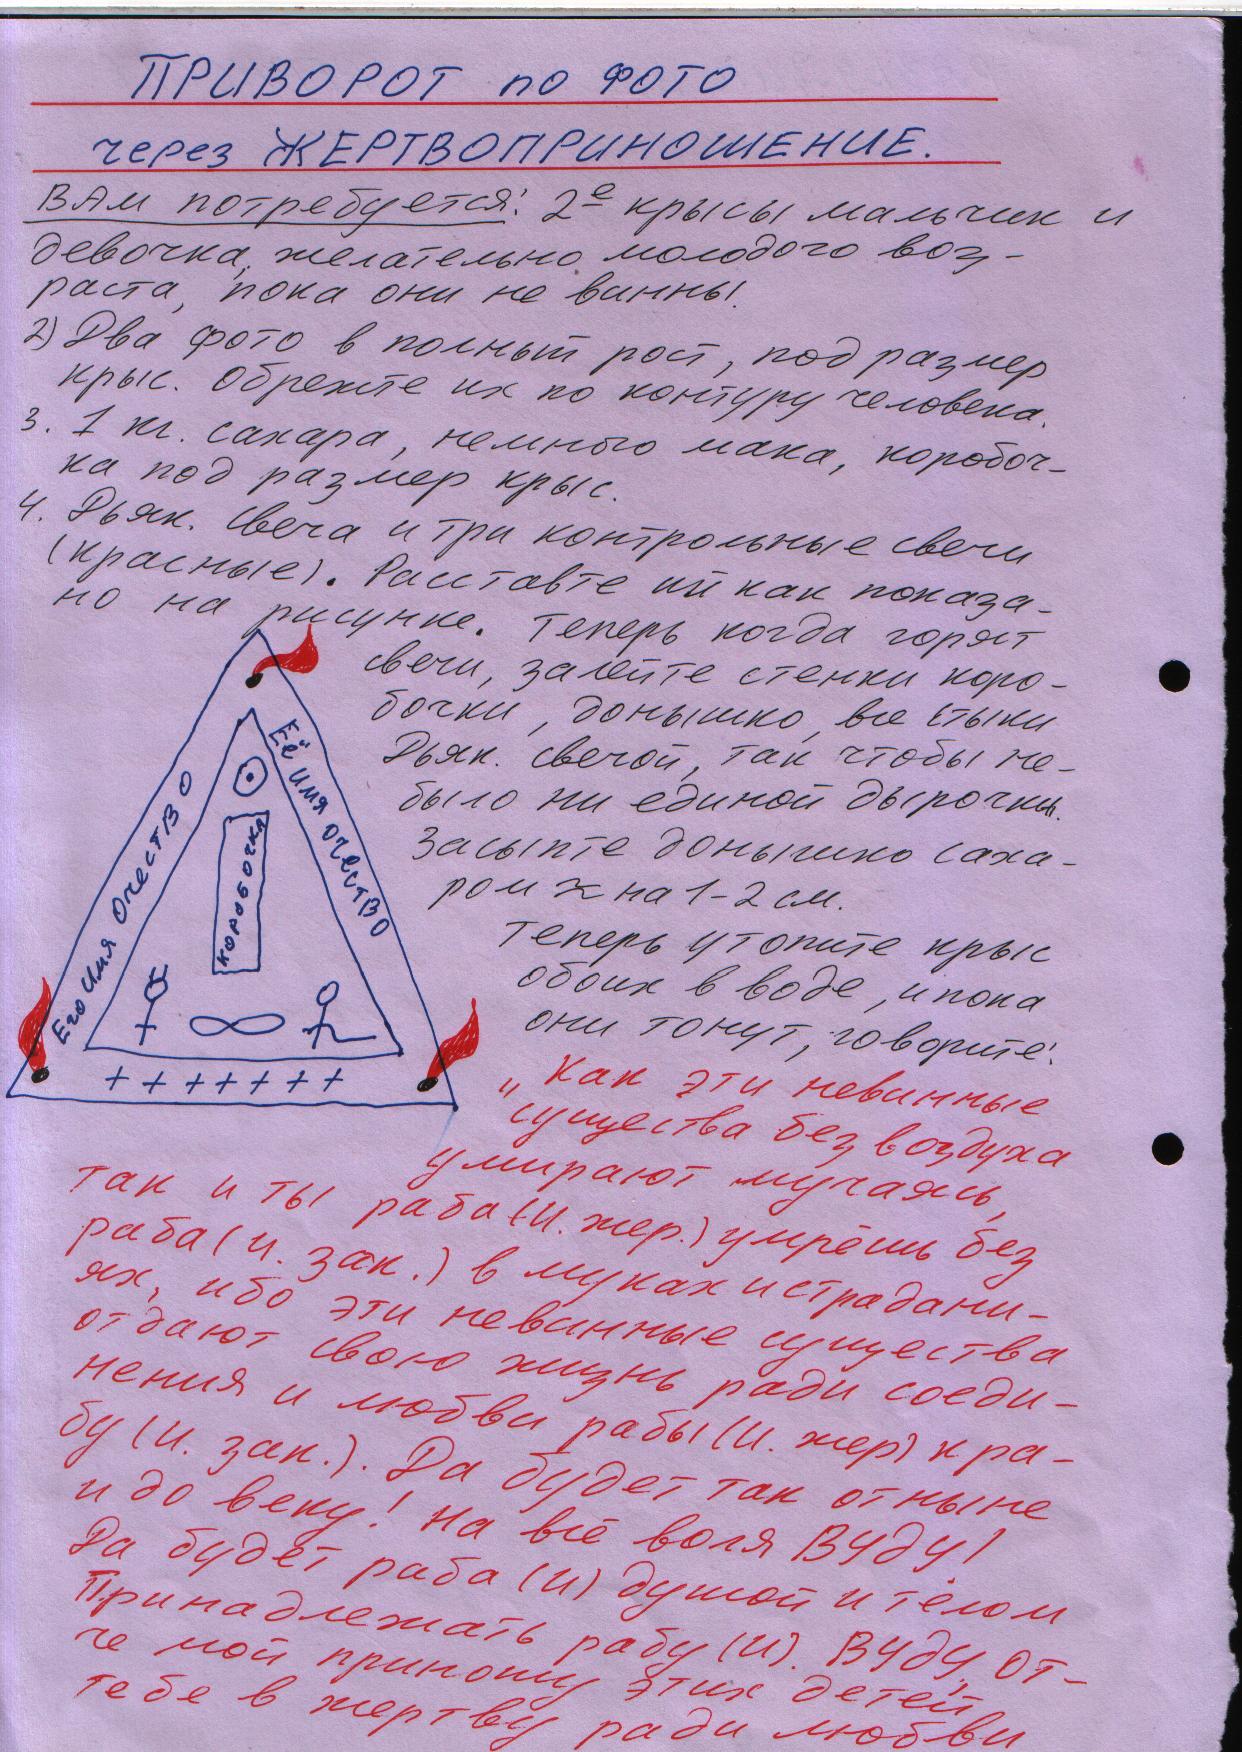 ПРИВОРОТ по ФОТО
через ЖЕРТВОПРИНОШЕНИЕ.
ВАМ потребуется: 2е крысы мальчик и
девочка, желательно молодого воз-
раста, пока они не винны!
2) Два фото в полный рост, под размер
крыс. Обрежте их по контуру человека.
3. 1 кг. сахара, немного мака, коробоч-
ка под размер крыс.
4. Дьяк. свеча и три контрольные свечи
(красные). Расставте ий как показа-
но на рисунке. Теперь когда горят
свечи, залейте стенки коро-
бочки, донышко, все стыки
Дьяк. свечой, так чтобы не-
было ни единой дырочки.
Засыпте донышко саха-
ром ж на 1-2 см.
Теперь утопите крыс
обоих в воде, и пока
они тонут, говорите:
Его имя Отчество
Её имя отчество
КОРОБОЧКА
"Как эти невинные
существа без воздуха
умирают мучаясь,
так и ты раба (И. жер.) умрёшь без
раба (И. зак.) в муках и страдани-
ях, ибо эти невинные существа
отдают свою жизнь ради соеди-
нения и любви рабы (И. жер) к ра-
бу (И. зак.). Да будет так отныне
и до веку! На всё воля ВУДУ!
Да будет раба (И) душой и телом
Принадлежать рабу (И). ВУДУ, От-
че мой приношу этих детей
тебе в жертву ради любви